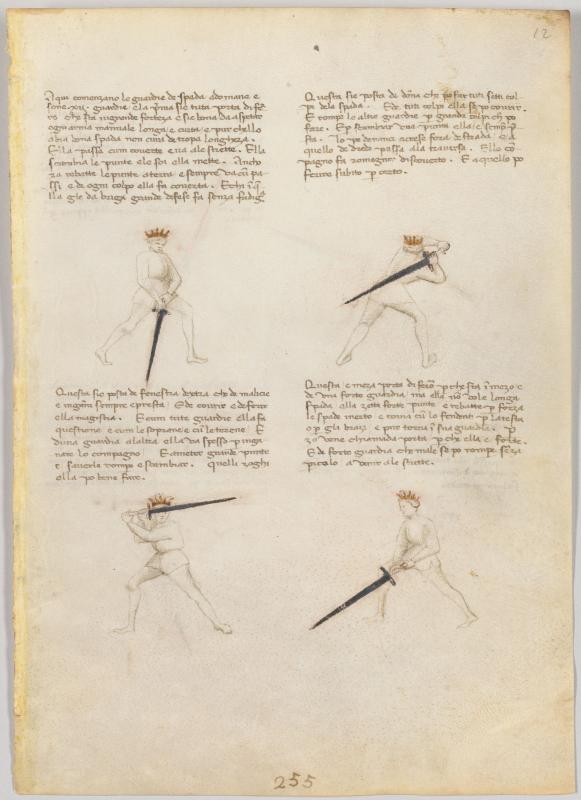 12
Aqui comenzano le guardie de spada adoi mane e
sone .xii. guardie ela p̃ma sie tuta porta di fe
ro che sta ĩ grande forteza e sie bona da aspetar
ogn arma manuale longa e curta e pur che llo
abia bona spada non cura de tropa longheza .
Ella passa cum coverte e va ale strette . Ella
scambia le punte ele soi ella mette . Ancho
ra rebatte le punte a terra e sempre va cũ pa
ssi e de ogni colpo ella fa coverta . Echi ĩ q̃
lla gle da briga grande defese fa senza fadig̃
Questa sie posta de dõna che po far tuti setti col
pi dela spada . E de tuti colpi ella se po covrir .
E rompe le altre guardie p grandi colpi ch po
fare . E p scambiar una punta ella e semp̃ p̃
sta . lo pe denanci acresse fora de strada e
quello de driedo passa ala traversa . E lo cõ
pagno fa romagner discoverto . E a quello po
ferire subito p certo .
Questa sie posta de fenestra dextra che de malicie
e ingãni sempre e presta . E de covrir e de ferire
ella magistra . E cum tute guardie ella fa
questione e cum le soprane e cũ le terene . E
d una guardia a laltra ella va spesso p inga
nare lo compagno . E a metter grande punte
e saverle romper e scambiar . Quelli zoghi
ella po bene fare .
Questa e meza porta di ferõ p che sta ĩ mezo e
de una forte guardia ma ella nõ vole longa
spada ella zeta forte punte e rebatte p forza
le spade inerto e torna cũ lo fendente p la testa
o p gli brazi e pur torna ĩ sua guardia . p
zo vene chiamada porta p che ella e forte .
E de forte guardia che male se po romper sẽza
piculo a venir ale strette .
255